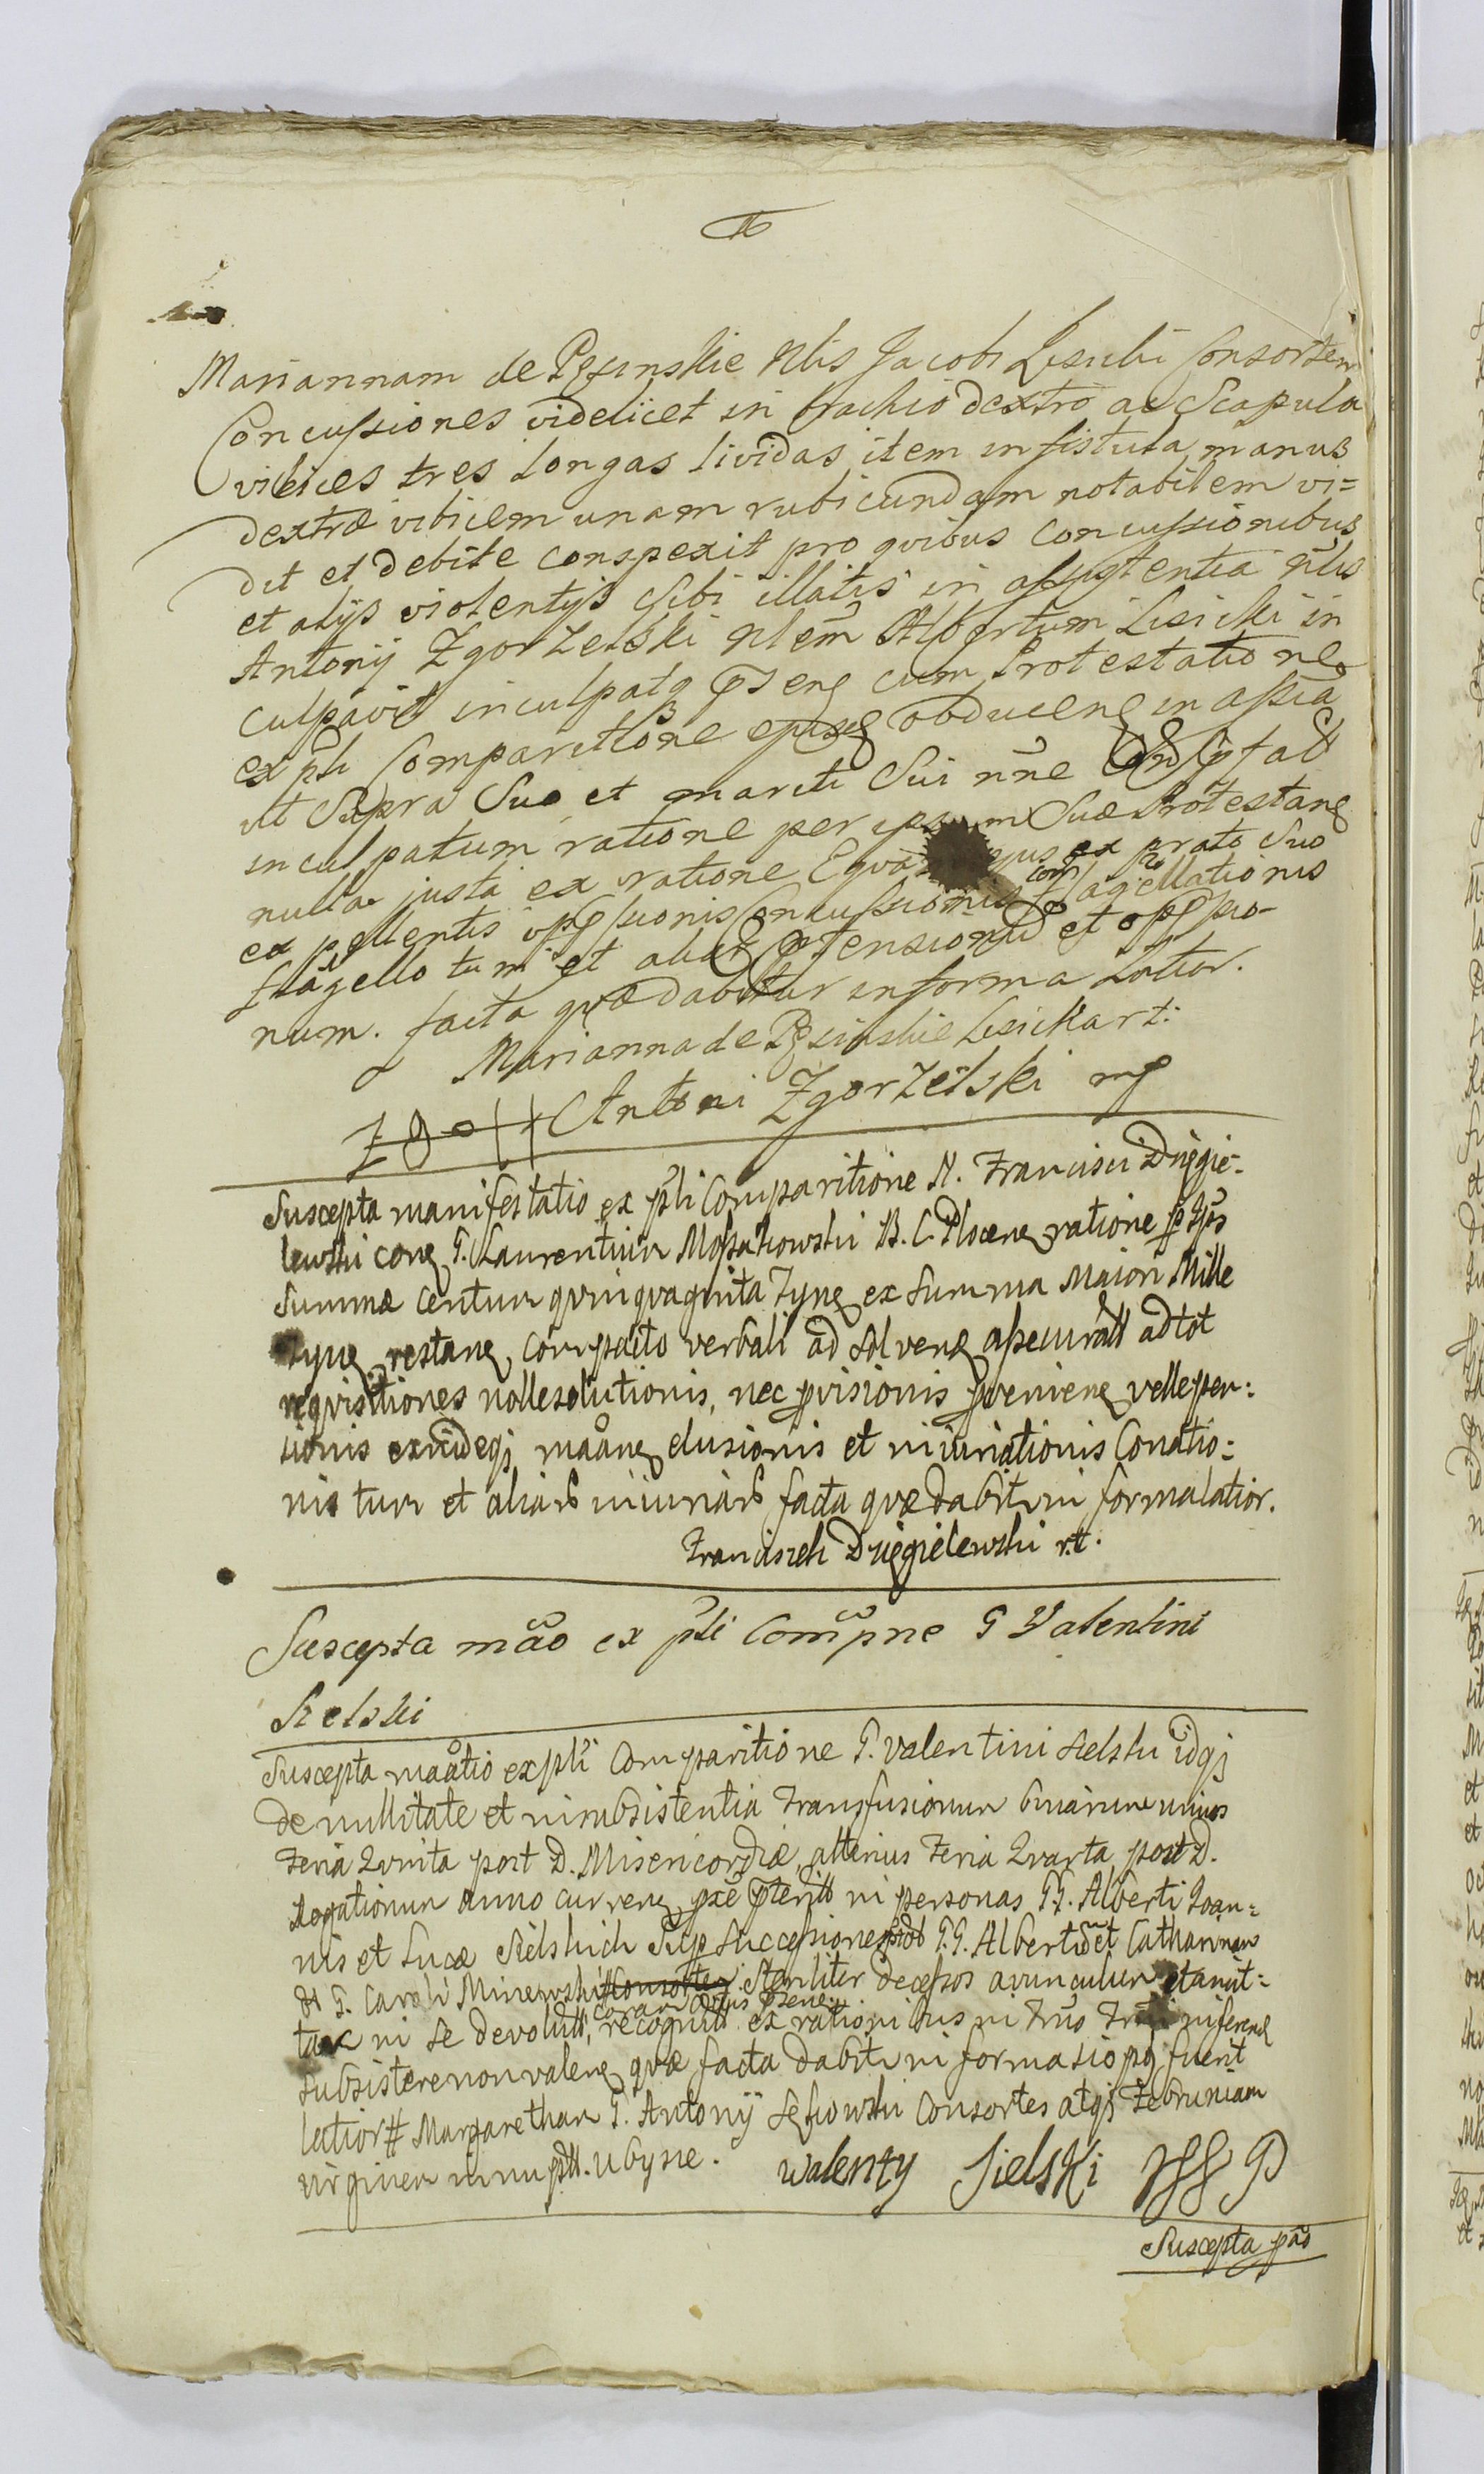 Mariannam de Pęsinskie Nlis Jacobi Lisicki Consortem
Concussiones videlicet in brachio dextro ac Scapula
vibices tres longas lividas item in fistula manus
dextræ vibicem unam rubicundam notabilem vi=
dit et debite conspexit pro qvibus concussionibus
et alijs violentijs sibi illatis in assistentia Nlis
Antonij Zgorzelski Nlem Albertum Lisicki in
culpavit inculpatq cum Protestatione
ex pli Comparitione obducen in assia
ut Supra Suo et mariti Sui nne
inculpatum ratione per ipsum Suæ Protestan
nulla justa ex ratione Eqva ejus ex prato Suo
ex pellentis Concussionis flagellationis
flagello tum et aliar et
num. facta qvæ dabitur in forma Latior.
Marianna de Pęsinskie Lisicka rt:
Antoni Zgorzelski mp
Suscepta manifestatio ex pli Comparitione N. Francisci Dzięgie-
lewski con G. Laurentium Mossakowski B. C. Plocen ratione
Summæ centum qvinqvaginta Tyn ex Summa Maiori Mille
Tyn restan, compacto verbali ad solven assecuratt ad tot
reqvisitiones nolle solutionis, nec pvisionis pvenien velle pen:
sionis exindeqj maan elusionis et iniuriationis Conatio=
nis tum et aliar iniuriar facta qvæ dabit in forma latior.
Franciszek Dzięgielewski rt.
Suscepta mao ex pli Compne G Valentini
Sielski
Suscepta maatio ex pli Comparitione G. Valentini Sielski idqj
de nullitate et insubsistentia Transfusionum binarum unius
Feria Qvinta post D. Misericordiæ, alterius Feria Qvarta post D.
Rogationum anno curren pxe pterit in personas GG. Alberti Joan=
nis et Lucæ Sielskich Sup Successiones post G.G. Albertu et Catharinam
G. Caroli Minewski Consortem Steriliter decessos avunculum et amit=
tam in se devolutt, coram Actis psen recognitt ex rationibus in Trus inferend
subsistere non valen qvæ facta dabit in forma siopq fuerit
latior # Margaretham G. Antonij Consortes atqj Februniam
virginem innuptt. Ubyne. Walenty Sielski
Suscepta pao